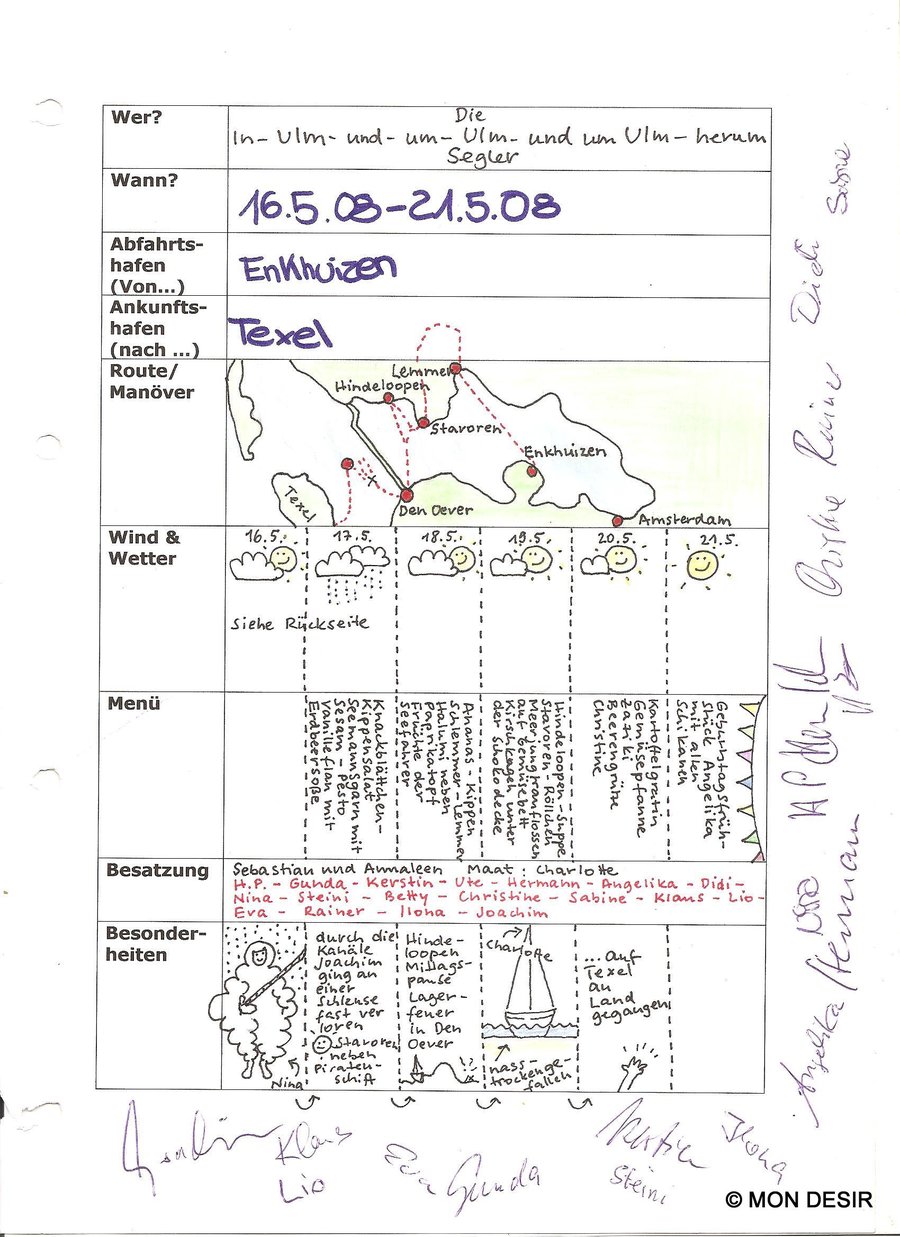 Wer?
Die
In-Ulm-und-um-Ulm-und um Ulm-herum
Segler
Wann?
16.5.08-21.5.08
Abfahrts-
hafen
(Von...)
Enkhuizen
Ankunfts-
hafen
(nach ...)
Texel
Route/
Manöver
Lemmer
Hindeloopen
Stavoren
Enkhuizen
Texel
Den Oever
Amsterdam
Wind &
Wetter
16.5. 17.5. 18.5. 19.5. 20.5. 21.5.
Siehe Rückseite
Menü
Knackblättchen-
Kippensalat
Seemannsgarn mit
Sesam-Pesto
Vanilleflan mit
Erdbeersoße
Ananas-Kippen
Schlemmer-Lemmer
Halumi neben
Paprikatopf
Früchte der
Seefahrer
Hindeloopen-Suppe
Stavoren Röllchen
Meerjungfrauflossen
auf Gemüsebett
Kirschkegeln unter
der Schokodecke
Kartoffelgratin
Gemüsepfanne
Zaziki
Beerengrütze
Christine
Geburtstagsfrüh-
stück Angelika
mit allen
Schikanen
Besatzung
Sebastian und Annaleen Maat: Charlotte
H.P. - Gunda - Kerstin - Ute - Hermann - Angelika - Didi -
Nina - Steini - Betty - Christine - Sabine - Klaus - Lio -
Eva - Rainer - Ilona - Joachim
Besonder-
heiten
Nina
durch die
Kanäle
Joachim
ging an
einer
Schleuse
fast ver
loren
Stavoren
neben
Piraten-
schiff
Hinde-
loopen
Mittags-
pause
Lager-
feuer
in Den
Oever
Charlotte
nass-
trockenge-
fallen
...auf
Texel
an
Land
gegangen
Sabine
Didi
Hermann
Angelika
Klaus
Lio
Eva
Gunda
Kerstin
Steini
Ilona
© MON DESIR